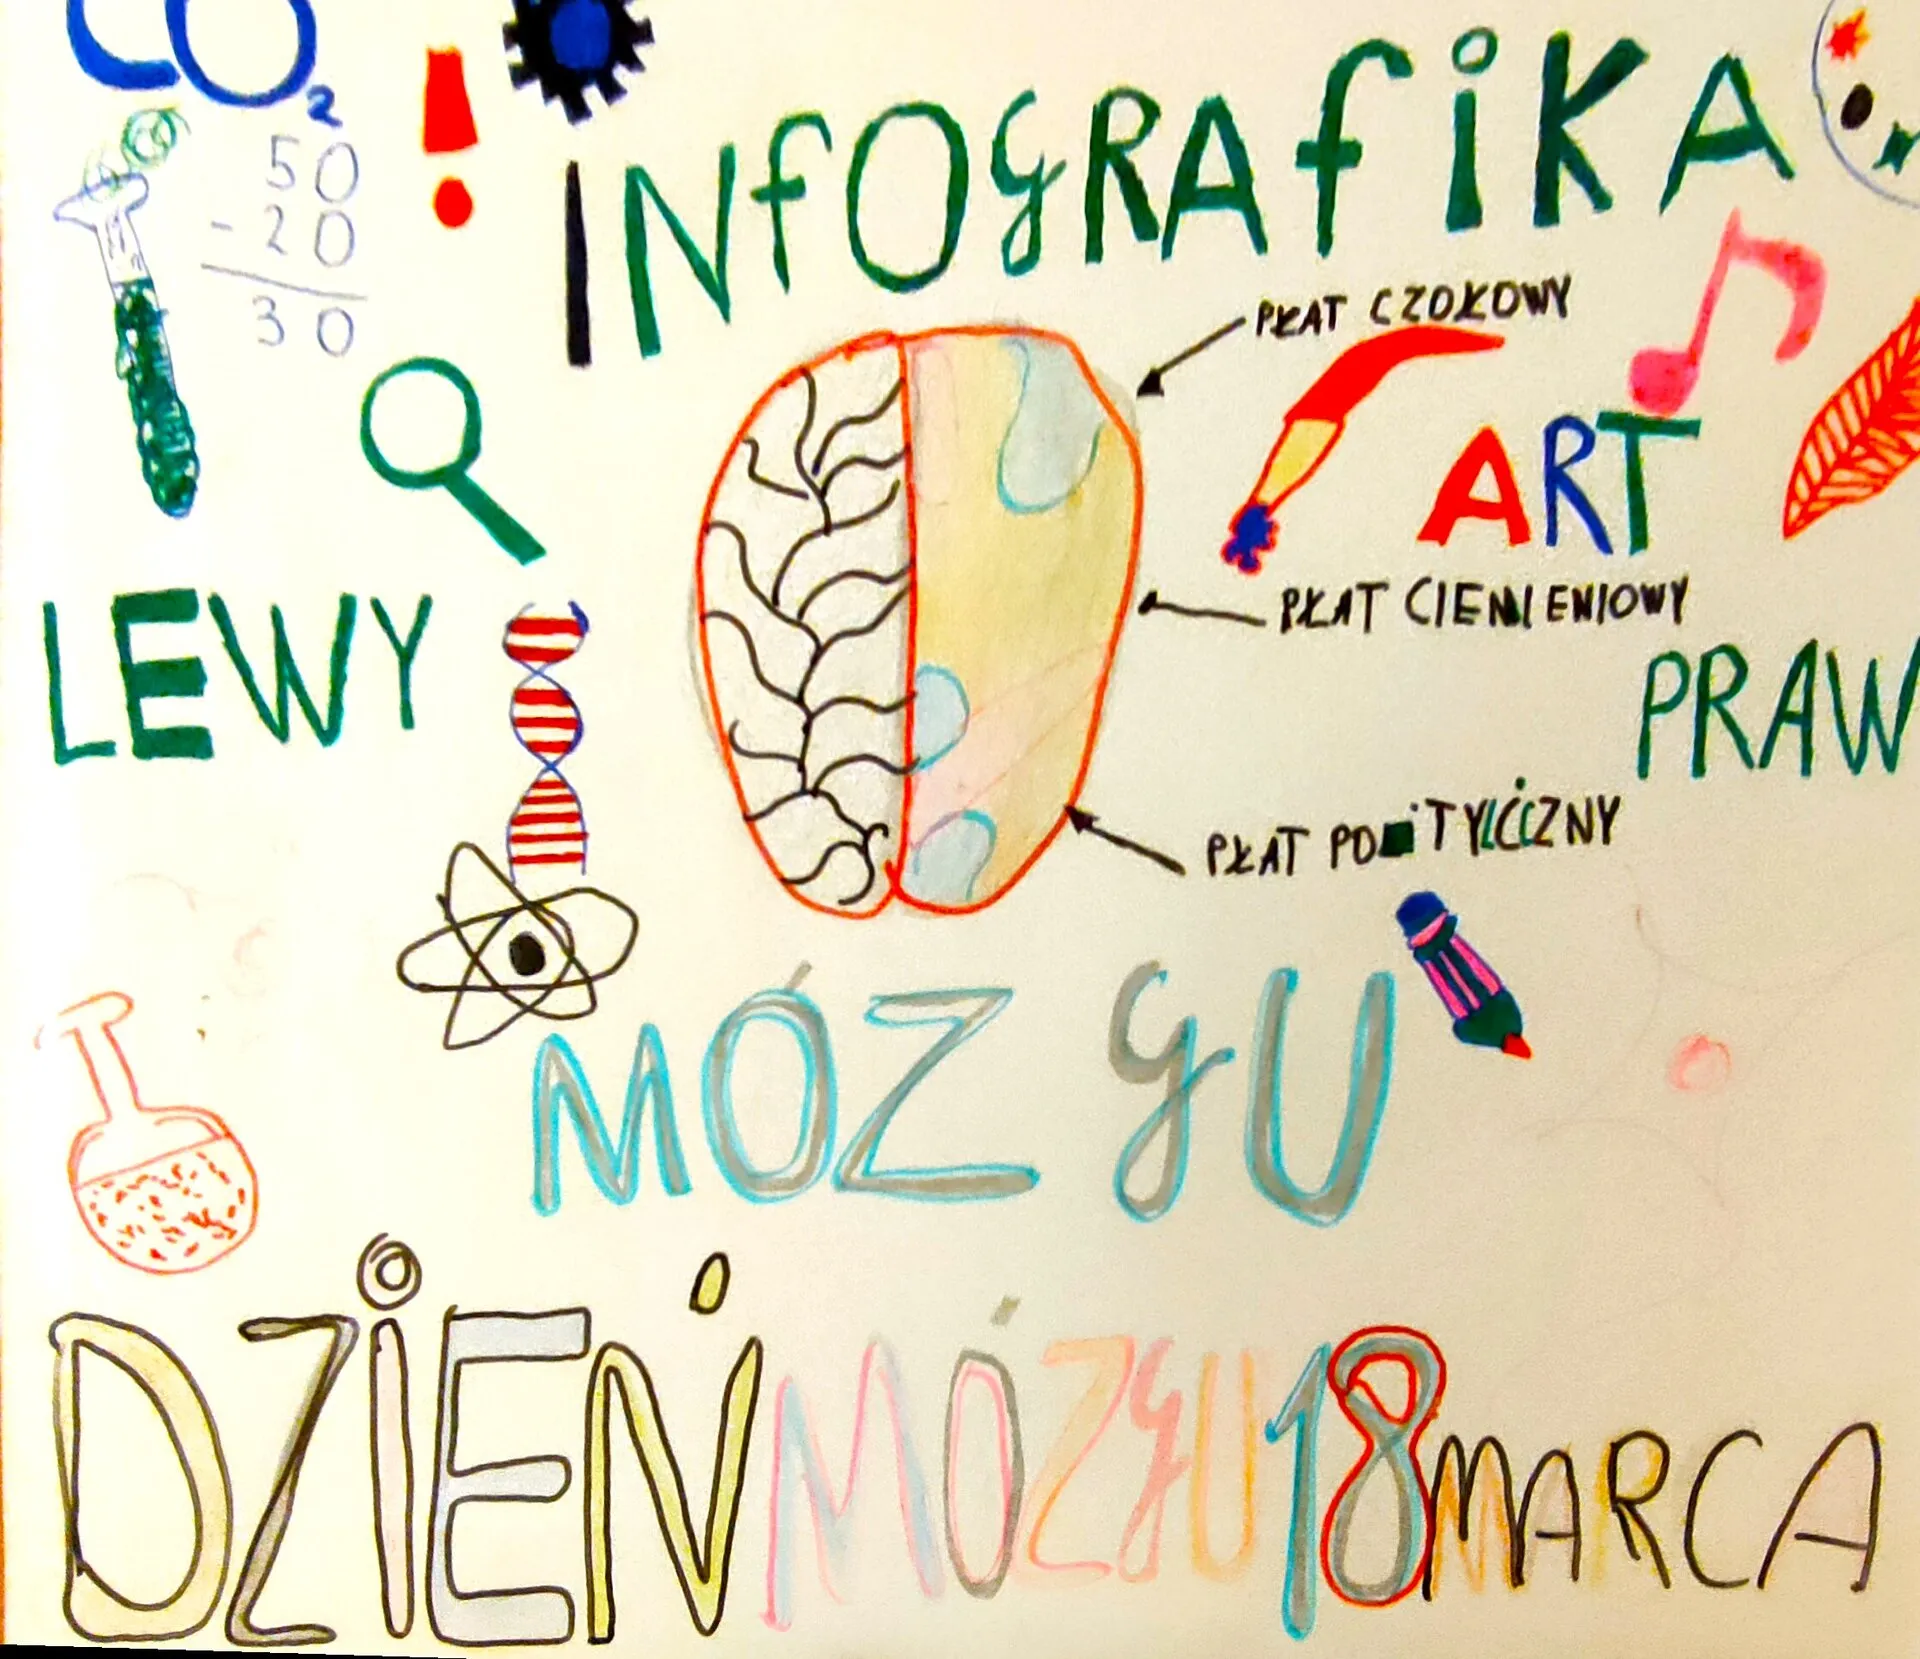 CO₂
!
50
- 20
30
INfOgRAfiKA
PŁAT CZOŁOWY
ART
LEWY
PŁAT CIEMIENIOWY
PRAW
PŁAT
MÓZgU
DZIEŃ MÓZgU 18 MARCA